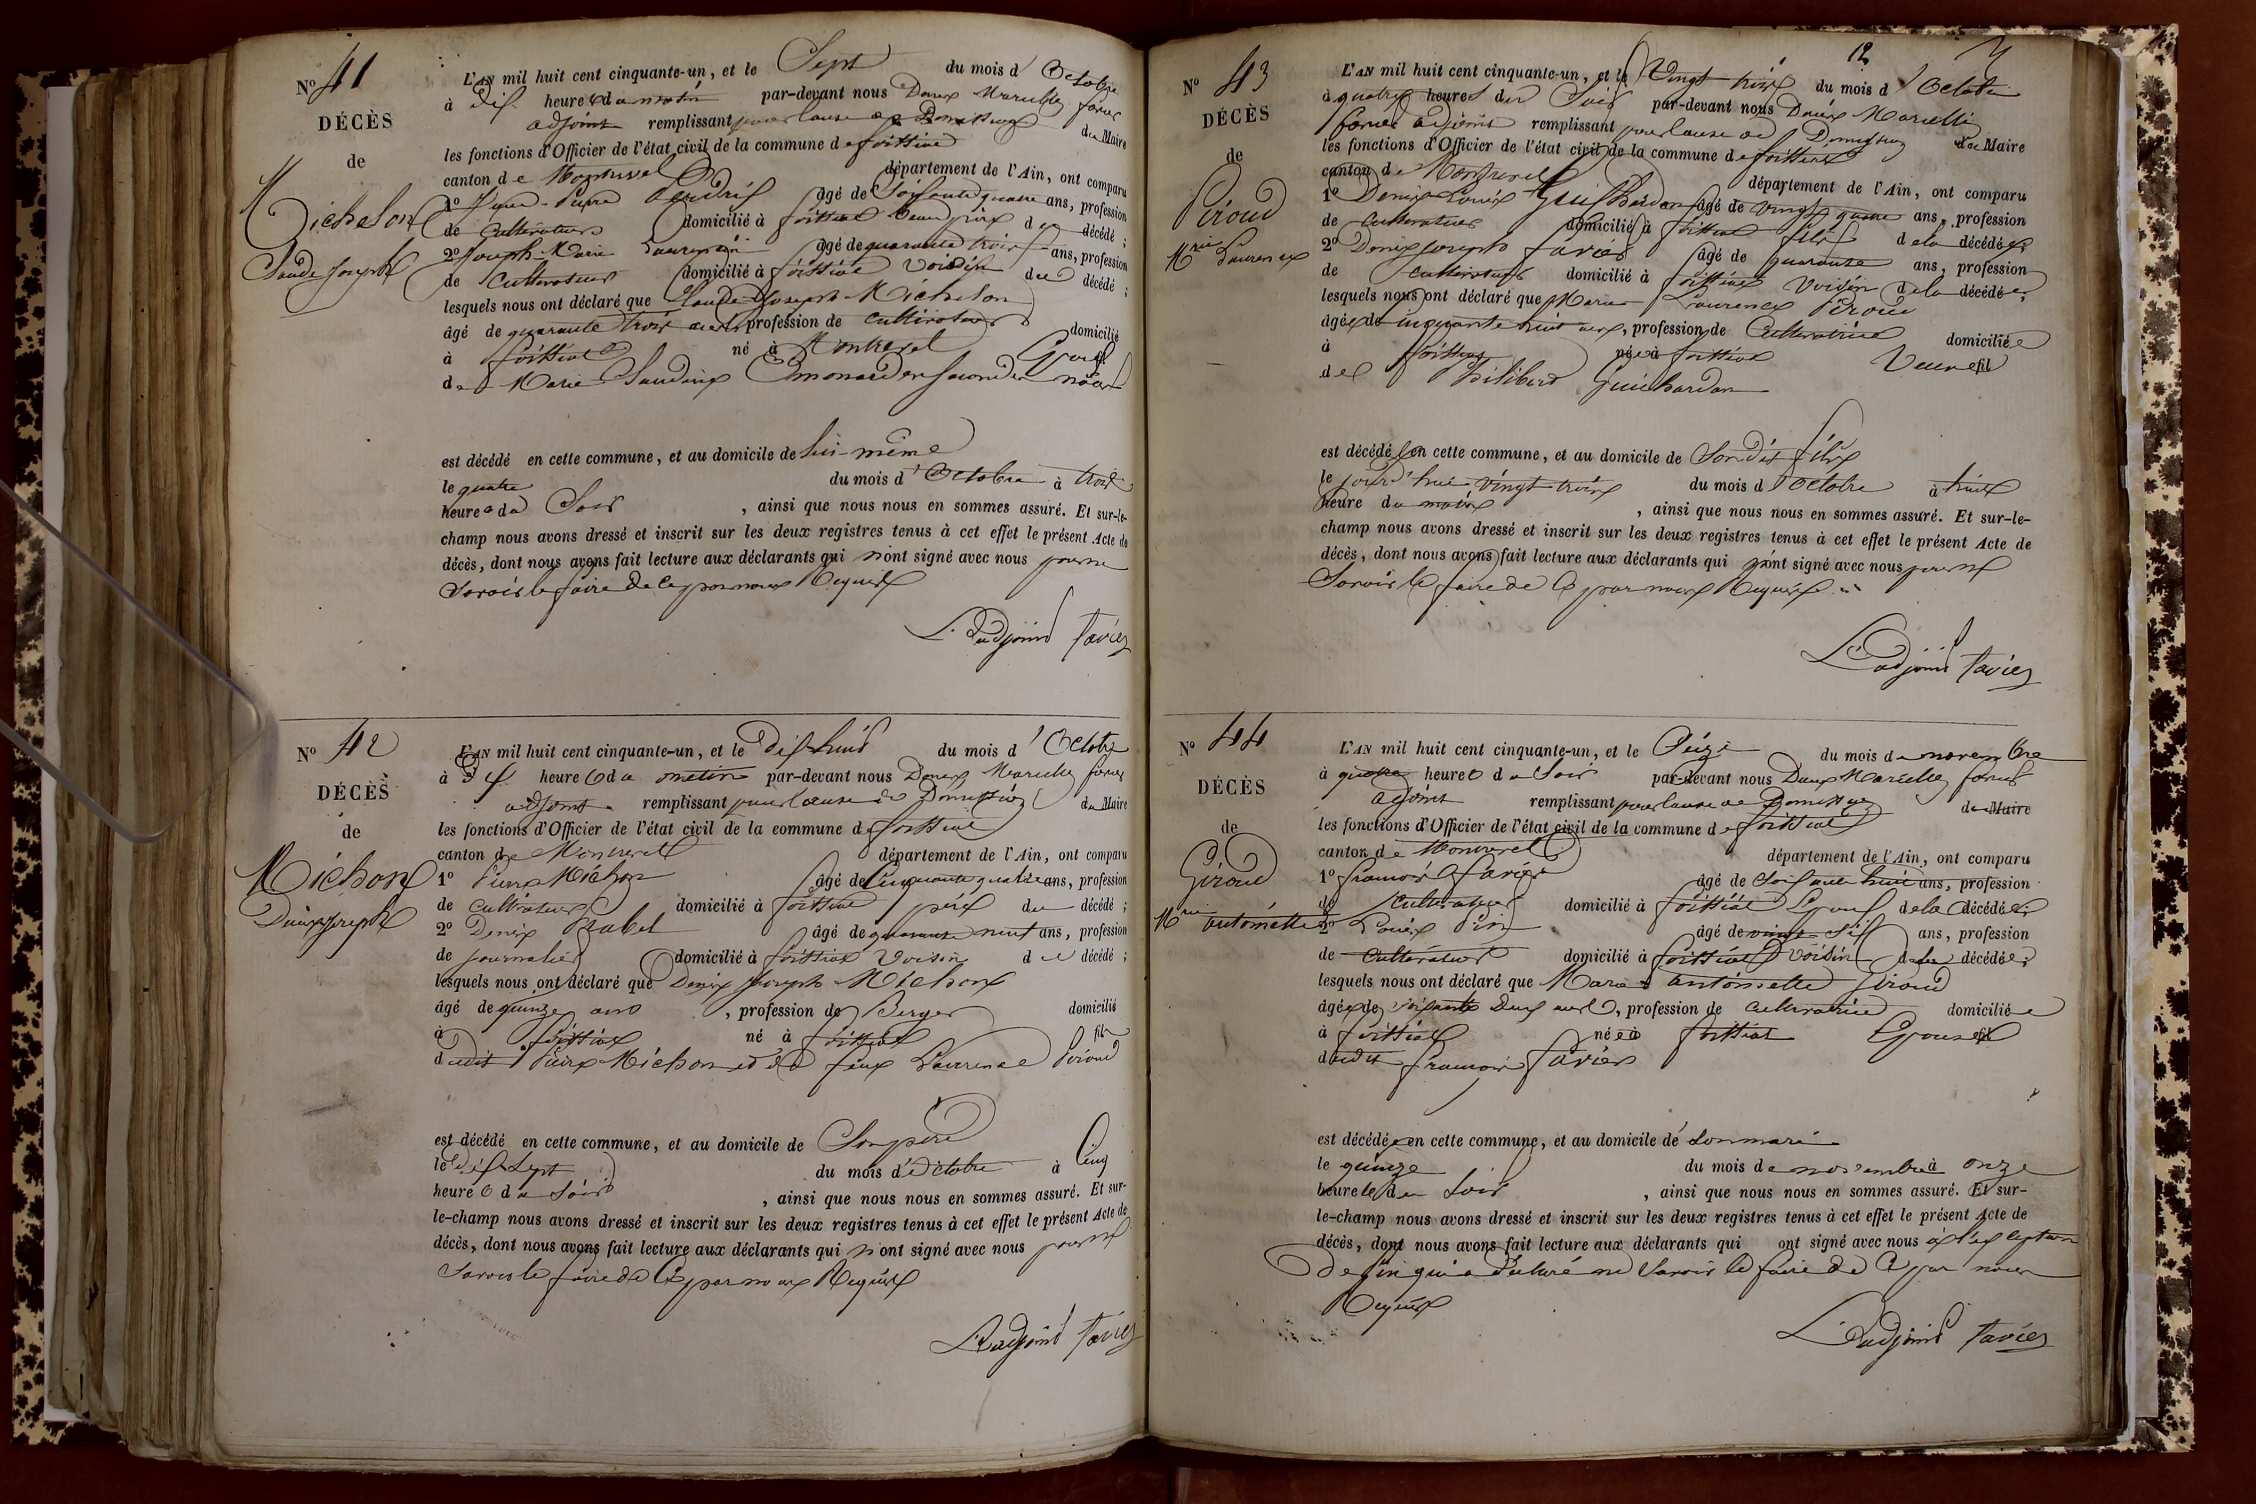 No 41
DÉCÈS
de
Michelon
Claude Joseph
L'AN mil huit cent cinquante-un, et le Sept du mois d'Octobre
à dix heures du matin par-devant nous Denis Marcelle favier
adjoint remplissant pour cause de du Maire
les fonctions d'Officier de l'état civil de la commune de foissiat
canton de Montrevel département de l'Ain, ont comparu
1o Pierre âgé de Soixante quatre ans, profession
de cultivateur domicilié à foissiat beau père du décédé ;
2o Joseph Marie âgé de quarante trois ans, profession
de cultivateur domicilié à foissiat voisin du décédé ;
lesquels nous ont déclaré que Claude Joseph Michelon
âgé de quarante trois ans profession de cultivateur domicilié
à foissiat né à Montrevel Epoux fil
de Marie Claudine en secondes noces
est décédé en cette commune, et au domicile de lui-même
le quatre du mois d'Octobre à trois
heures du Soir , ainsi que nous nous en sommes assuré. Et sur-le-
champ nous avons dressé et inscrit sur les deux registres tenus à cet effet le présent Acte de
décès, dont nous avons fait lecture aux déclarants qui n'ont signé avec nous pour ne
Savoir le faire de ce par nous Requis
L'adjoint favier
No 42
DÉCÈS
de
Michon
Denis Joseph
L'AN mil huit cent cinquante-un, et le dix huit du mois d'Octobre
à Dix heures du matin par-devant nous Denis Marcelle favier
adjoint remplissant pour cause de du Maire
les fonctions d'Officier de l'état civil de la commune de foissiat
canton de Montrevel département de l'Ain, ont comparu
1o Pierre Michon âgé de Cinquante quatre ans, profession
de cultivateur domicilié à foissiat père du décédé ;
2o Denis Rabel âgé de quarante neuf ans, profession
de journalier domicilié à foissiat Voisin du décédé ;
lesquels nous ont déclaré que Denis Joseph Michon
âgé de quinze ans , profession de Berger domicilié
à foissiat né à foissiat fils
dudit Pierre Michon et de feue Laurence Piroud
est décédé en cette commune, et au domicile de Son père
le dix Sept du mois d'octobre à Cinq
heures du Soir , ainsi que nous nous en sommes assuré. Et sur-
le-champ nous avons dressé et inscrit sur les deux registres tenus à cet effet le présent Acte de
décès, dont nous avons fait lecture aux déclarants qui n'ont signé avec nous pour ne
Savoir le faire de Ce par nous Requis
L'adjoint favier
12
No 43
DÉCÈS
de
Piroud
Mrie Laurence
L'AN mil huit cent cinquante-un, et le Vingt trois du mois d'Octobre
à quatre heures du Soir par-devant nous Denis Marcelle
favier adjoint remplissant pour cause de du Maire
les fonctions d'Officier de l'état civil de la commune de foissiat
canton de Montrevel département de l'Ain, ont comparu
1o Denis Louis Guichardon âgé de vingt quatre ans, profession
de cultivateur domicilié à foissiat fils de la décédée ;
2o Denis Joseph favier âgé de quarante ans, profession
de cultivateur domicilié à foissiat Voisin de la décédée ;
lesquels nous ont déclaré que Marie Laurence Piroud
âgée de cinquante huit ans, profession de Cultivatrice domiciliée
à foissiat née à foissiat Veuve fil
de Philibert Guichardon
est décédée en cette commune, et au domicile de Son dit fils
le jour d'hui vingt trois du mois d'Octobre à huit
heure du matin , ainsi que nous nous en sommes assuré. Et sur-le-
champ nous avons dressé et inscrit sur les deux registres tenus à cet effet le présent Acte de
décès, dont nous avons fait lecture aux déclarants qui n'ont signé avec nous pour ne
Savoir le faire de Ce par nous Requis
L'adjoint favier
No 44
DÉCÈS
de
Giroud
Mrie antoinette
L'AN mil huit cent cinquante-un, et le Seize du mois de novembre
à quatre heures du Soir par-devant nous Denis Marcelle favier
adjoint remplissant pour cause de du Maire
les fonctions d'Officier de l'état civil de la commune de foissiat
canton de Montrevel département de l'Ain, ont comparu
1o francois favier âgé de Soixante huit ans, profession
de cultivateur domicilié à foissiat Epoux de la décédée ;
2o Louis Pin âgé de vingt Six ans, profession
de cultivateur domicilié à foissiat voisin de la décédée ;
lesquels nous ont déclaré que Marie antoinette Giroud
âgée de soixante Deux ans, profession de cultivatrice domiciliée
à foissiat née à foissiat Epouse fil
dudit francois favier
est décédée en cette commune, et au domicile de son mari
le quinze du mois de novembre à onze
heures du Soir , ainsi que nous nous en sommes assuré. Et sur-
le-champ nous avons dressé et inscrit sur les deux registres tenus à cet effet le présent Acte de
décès, dont nous avons fait lecture aux déclarants qui ont signé avec nous à l'exception
De Pin qui a Déclaré ne Savoir le faire de Ce par nous
Requis
L'adjoint favier